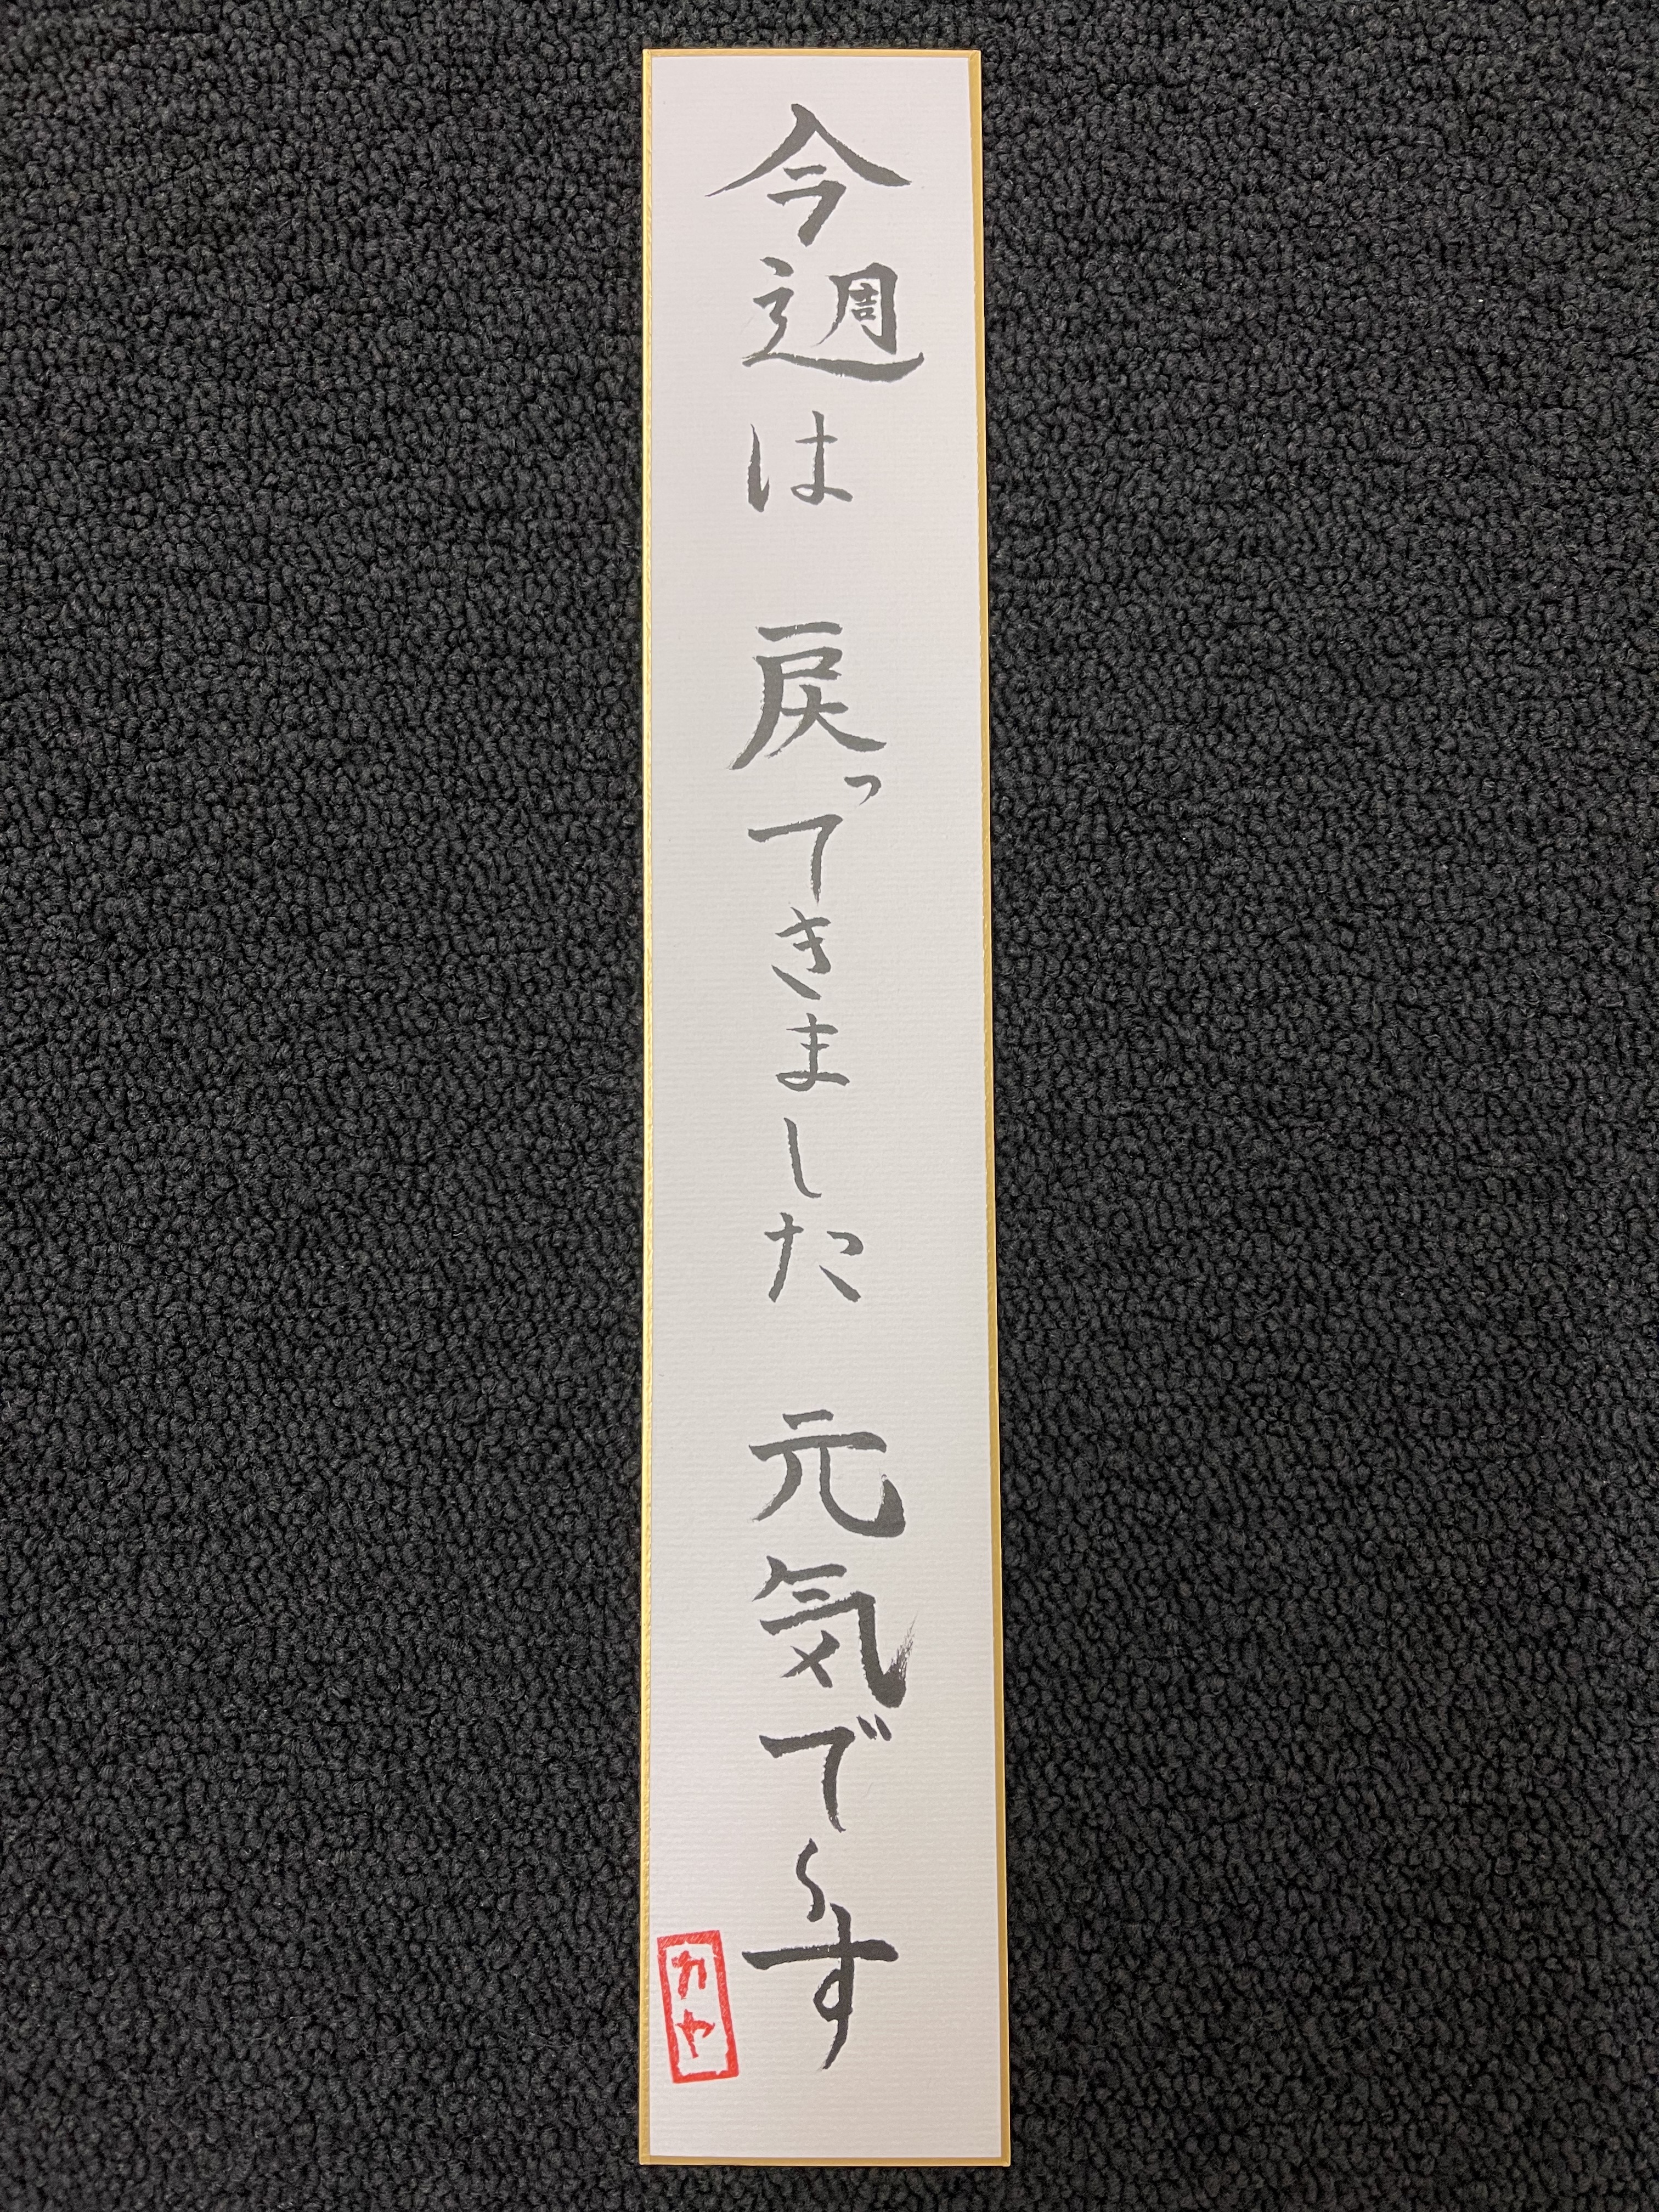 今週は 戻ってきました 元気で〜す
カヤ